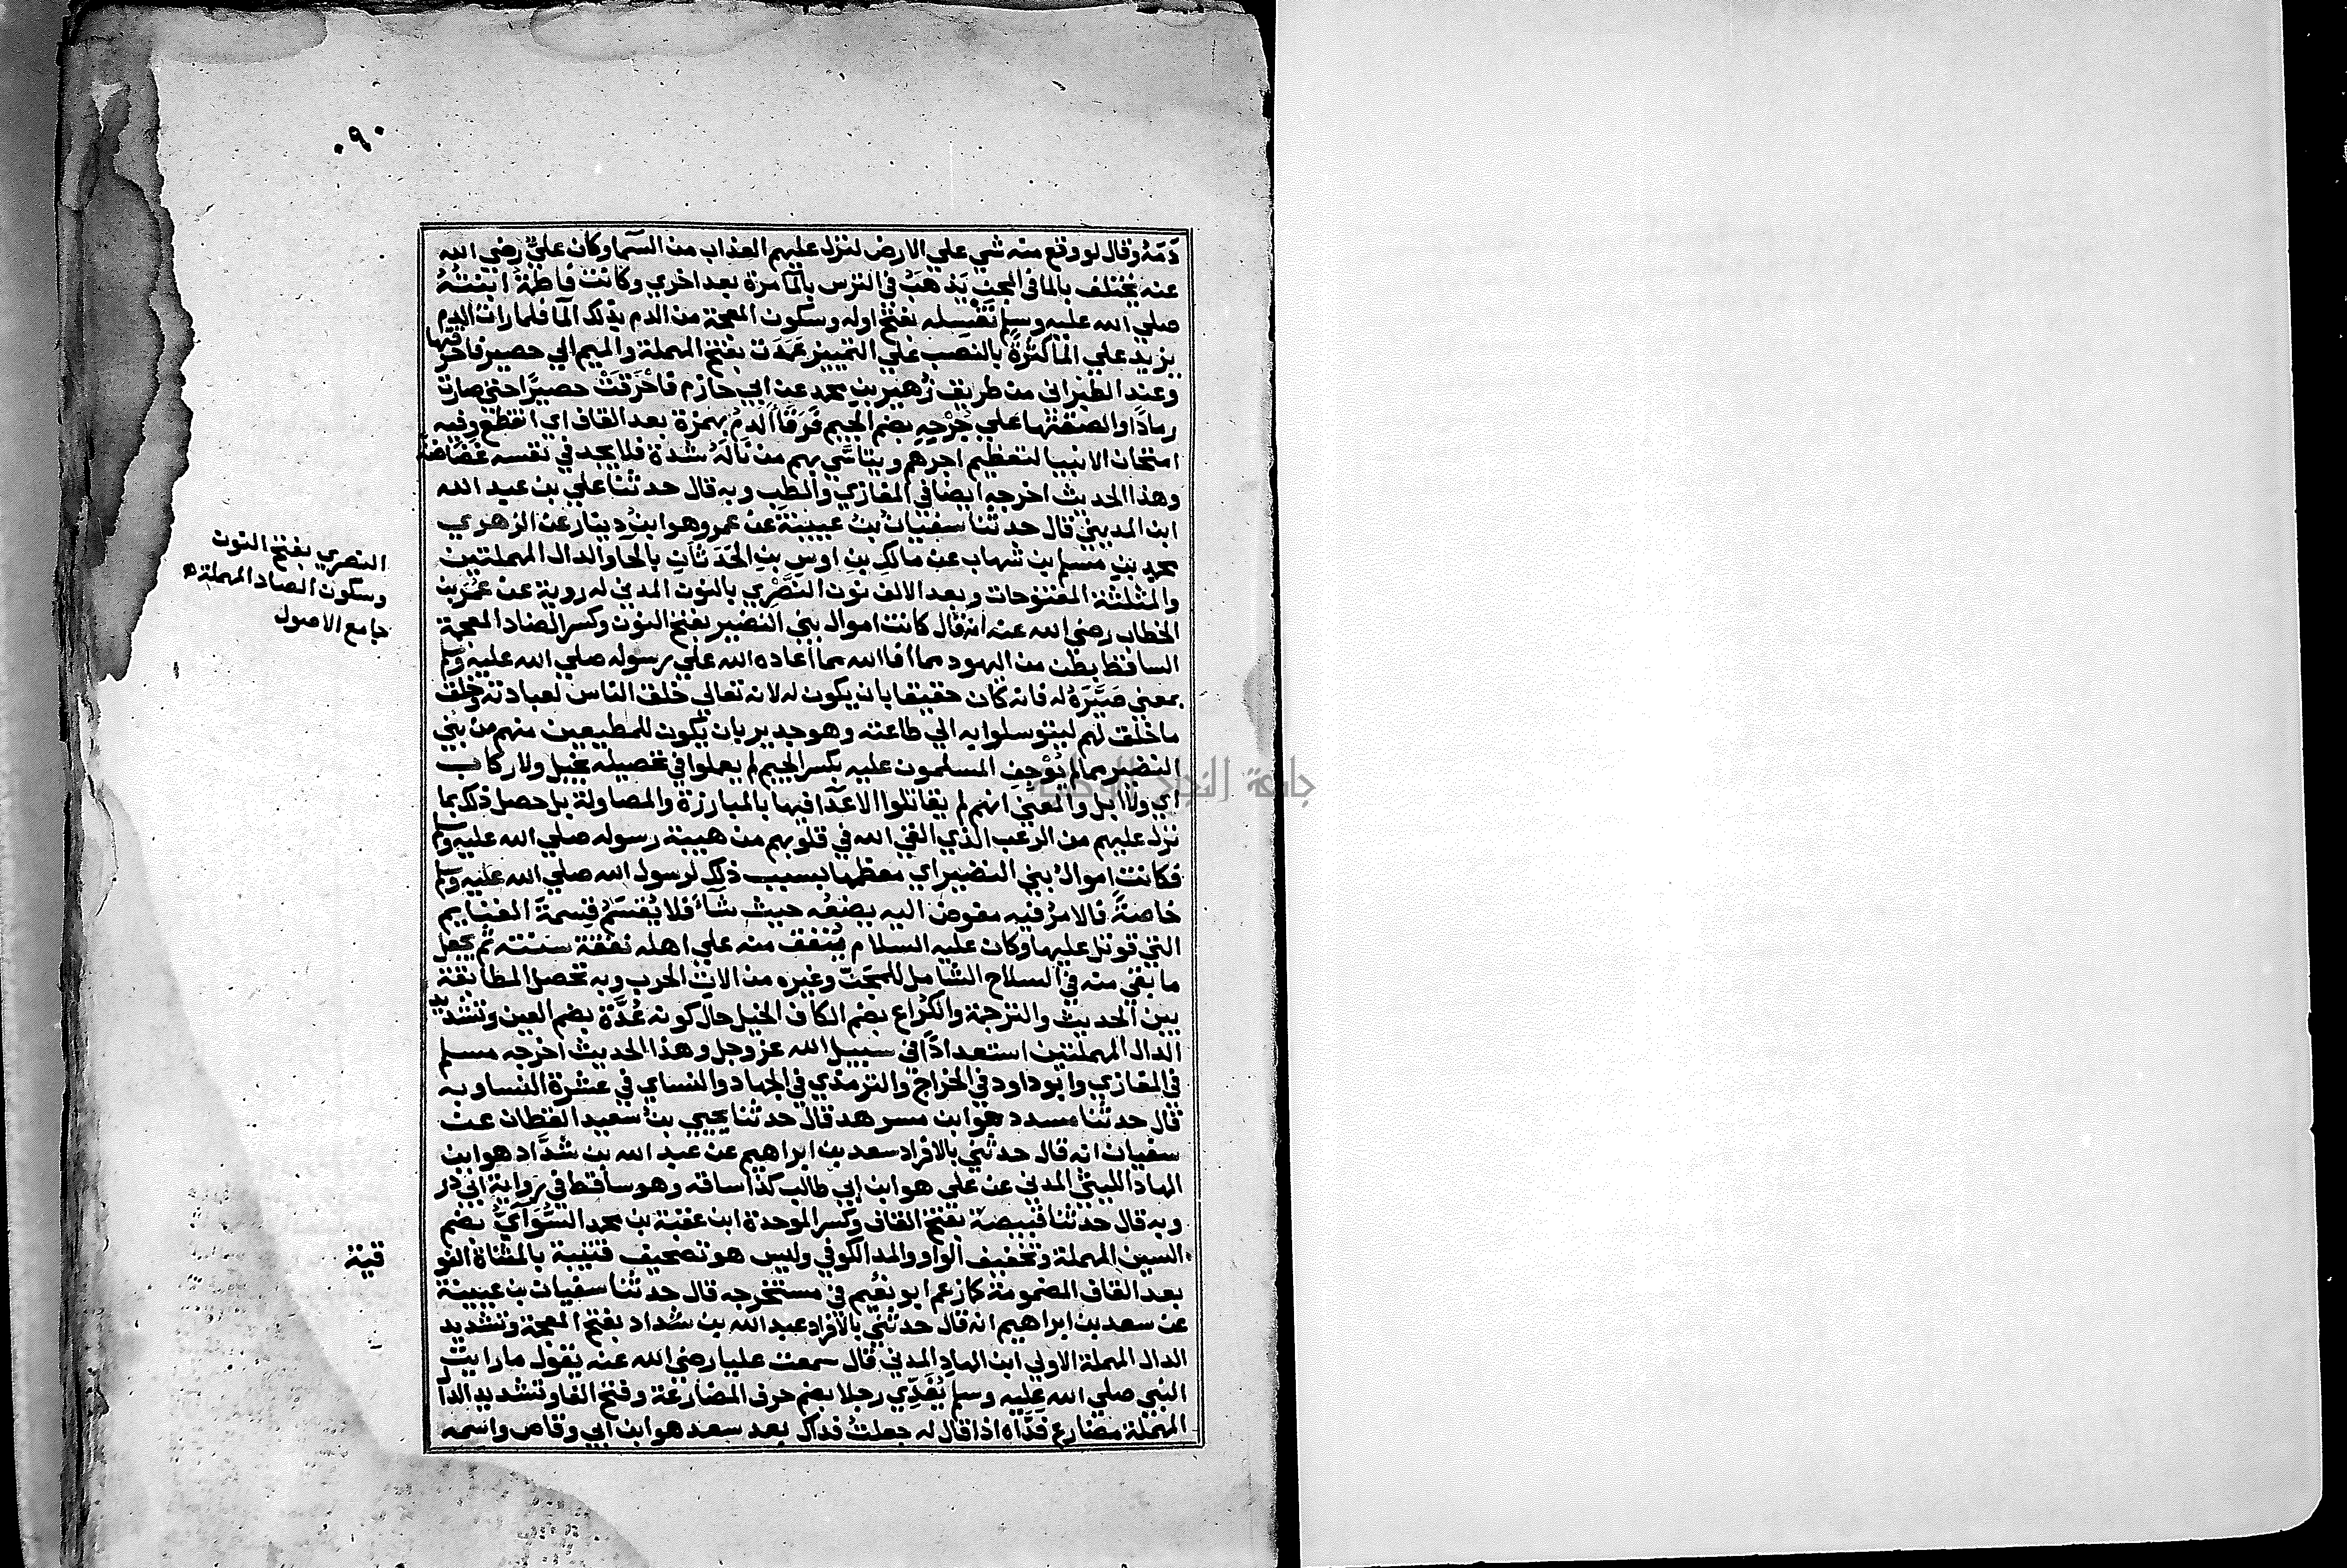 ٠٩٠
دَمَهُ وقال لو وقع منه شي علي الارض لنزل عليهم العذاب من السما وكان عليٌّ رضي الله
عنه يختلف بالما في المجن يَذهَبُ في الترس بالما مرة بعد اخري وكانت فاطمة ابنته
صلي الله عليه وسلم تَغسِله بفتح اوله وسكون المعجمة من الدم بذلك الما فلما رات الدم
يزيد علي الما كَثْرةً بالنصب علي التمييز عَمَدَت بفتح المهملة والميم الي حصير فاحرقتها
وعند الطبراني من طريق زُهير بن محمد عن ابي حازم فاحْرَقتْ حصيرًا حتي صارت
رمادًا والصقتها علي جُرْحِهِ بضم الجيم فَرَقَأ الدمُ بهمزة بعد القاف اي انقطع وفيه
امتحان الانبيا لتعظيم اجرهم ويتاسَّي بهم من نَالَهُ شدة فلا يجد في نفسه غضاضة
وهذا الحديث اخرجه ايضا في المغازي والطب وبه قال حدثنا علي بن عبد الله
ابن المديني قال حدثنا سفيانُ بنُ عيينةَ عن عمرو هو ابنُ دينار عن الزهري
محمد بن مسلم بن شهاب عن مالك بنِ اوسِ بنِ الحَدَثَانِ بالحا والدال المهملتين
والمثلثة المفتوحات وبعد الالف نون النَّصْري بالنون المدني له روية عن عُمَر بن
الخطاب رضي الله عنه انه قال كانت اموال بني النضير بفتح النون وكسر الضاد المعجمة
الساقط بطن من اليهود مما افا الله مما اعاده الله علي رسوله صلي الله عليه وسلم
بمعني صَيَّرَهُ له فانه كان حقيقا بان يكون له لانه تعالي خلق الناس لعبادته وخلق
ما خلق لهم ليتوسلوا به الي طاعته وهو جدير بان يكون للمطيعين منهم من بني
النضير مما لم يُوْجِفِ المسلمون عليه بكسر الجيم لم يعملوا في تحصيله بخيل ولا ركاب
اي ولا ابل والمعني انهم لم يقاتلوا الاعدا فيها بالمبارزة والمصاولة بل حصل ذلك بما
نزل عليهم من الرعب الذي القي الله في قلوبهم من هيبة رسوله صلي الله عليه وسلم
فكانت اموالُ بني النضير اي معظمها بسبب ذلك لرسول الله صلي الله عليه وسلم
خاصةً فالامرُ فيه مفوض اليه يضعُه حيث شآءَ فلا يُقسَمُ قِسمَةَ الغنايم
التي قوتل عليها وكان عليه السلام يُنفق منه علي اهله نفقة سنته ثم يجعل
ما بقي منه في السلاح الشامل للمجَنّ وغيره من الات الحرب وبه تحصل المطابقة
بين الحديث والترجمة والكُرَاع بضم الكاف الخيل حال كونه عُدَّة بضم العين وتشديد
الدال المهملتين استعدادًا في سبيل الله عز وجل وهذا الحديث اخرجه مسلم
في المغازي وابو داود في الخراج والترمذي في الجهاد والنساي في عشرة النسا وبه
قال حدثنا مسدد هو ابن مسرهد قال حدثنا يحيي بنُ سعيد القطان عن
سفيان انه قال حدثني بالافراد سعد بن ابراهيم عن عبد الله بن شَدَّاد هو ابن
الهاد الليثي المدني عن علي هو ابن ابي طالب كذا ساقه وهو ساقط في رواية ابي ذر
وبه قال حدثنا قَبيصَة بفتح القاف وكسر الموحدة ابن عقبة بن محمد السُّوَآئيُّ بضم
السين المهملة وتخفيف الواو والمد الكوفي وليس هو تصحيف قتيبة بالمثناة الفو
بعد القاف المضمومة كما زعم ابو نعُيم في مستخرجه قال حدثنا سفيان بن عيينة
عن سعد بن ابراهيم انه قال حدثني بالافراد عبد الله بن شداد بفتح المعجمة وتشديد
الدال المهملة الاولي ابن الهادِ المدني قال سمعت عليا رضي الله عنه يقول ما رايت
النبي صلي الله عليه وسلم يُفَدِّي رجلا بضم حرف المضارعة وفتح الفا وتشديد الدا
المهملة مضارع فَدَّاه اذا قال له جعلتُ فداك بعد سعد هو ابن ابي وقاص واسمه
النصري بفتح النون
وسكون الصاد المهملة ه
جامع الاصول
قية
جامعة النجاح الوطنية